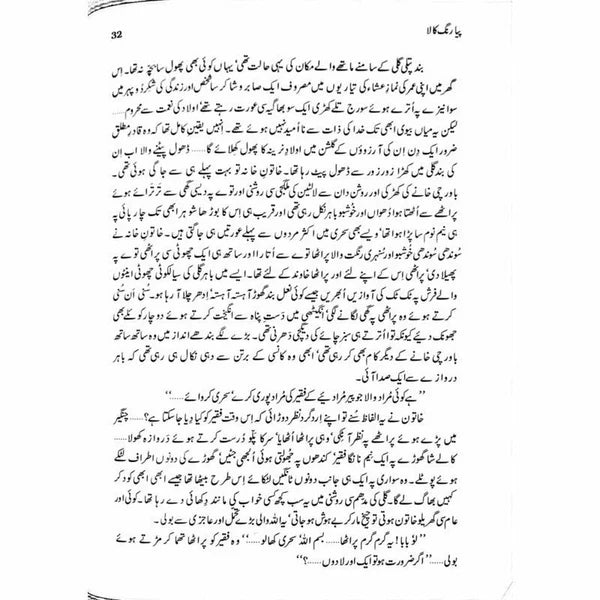 پیا رنگ کالا
32
بند پتلی گلی کے سامنے ماتھے والے مکان کی یہی حالت تھی‘ یہاں کوئی بھی پھول سانجھ نہ تھا۔ اِس
گھر میں اپنی عمر کی نمازِ عشاء کی تیاریوں میں مصروف ایک صابر و شاکر شخص اور زندگی کی شکر دوپہر میں
سوا نیزے پہ اُترے ہوئے سورج تلے کھڑی ایک سوبھاگیہ سی عورت رہتے تھے‘ اولاد کی نعمت سے محروم......
لیکن یہ میاں بیوی ابھی تک خدا کی ذات سے نااُمید نہیں ہوئے تھے۔ اُنہیں یقینِ کامل تھا کہ وہ قادرِ مطلق
ضرور ایک دن اِن کی آرزوؤں کے گلشن میں اولادِ نرینہ کا پھول کھلائے گا ...... ڈھول پیٹنے والا اب اِن
کی بند گلی میں کھڑا زور زور سے ڈھول پیٹ رہا تھا۔ خاتونِ خانہ تو بہت پہلے ہی سے جاگی ہوئی تھی۔
باورچی خانے کی کھڑکی اور روشن دان سے لالٹین کی ملگجی سی روشنی اور توے پہ دیسی گھی سے تَرتَراتے ہوئے
پراٹھے سے اُٹھتا ہوا دُھواں اور خُوشبو باہر نکل رہی تھی اور قریب ہی اِس کا بوڑھا شوہر ابھی تک چارپائی پہ
ہی نیم نوم سا پڑا ہوا تھا‘ ویسے بھی سحری میں اکثر مردوں سے پہلے عورتیں ہی جاگتی ہیں۔ خاتونِ خانہ نے
سُوندھی سُوندھی خُوشبو اور سُنہری رنگت والا پراٹھا توے سے اُتارا اور ساتھ ہی ایک چھوٹی سی پراٹھی توے پہ
پھیلا دی‘ پراٹھی اِس کے اپنے لئے اور پراٹھا خاوند کے لئے تھا۔ ایسے میں باہر گلی کی سیالکوٹی چھوٹی اینٹوں
والے فرش پہ ٹک ٹک کی آوازیں اُبھریں جیسے کوئی نعل بند گھوڑا آہستہ آہستہ‘ اِدھر چلا آ رہا ہو۔ سُنی اَن سُنی
کرتے ہوئے وہ پراٹھی پہ گھی لگانے لگی‘ انگیٹھی میں دَستِ پناہ سے انگیخت کرتے ہوئے دو چار کوئلے بھی
جھونک دیئے کیونکہ توا اُترتے ہی سبز چائے کی دیگچی دَھرنی تھی۔ بڑے لگے بندھے انداز میں وہ ساتھ ساتھ
باورچی خانے کے دیگر کام بھی کر رہی تھی‘ ابھی وہ کانسی کے برتن سے دہی نکال ہی رہی تھی کہ باہر
دروازے سے ایک صدا آئی۔
’’ہے کوئی مُراد والا جو پیر مُرادیئے کے فقیر کی مُراد پوری کرے‘ سحری کروائے......‘‘
خاتون نے یہ الفاظ سُنے تو اپنے اِردگرد نظر دوڑائی کہ اِس وقت فقیر کو کیا دِیا جا سکتا ہے؟...... چنگیر
میں پڑے ہوئے پراٹھے پہ نظر آ ٹکی‘ وہی پراٹھا اُٹھایا‘ سر کا پلّو دُرست کرتے ہوئے دَروازہ کھولا......
کالے شا گھوڑے پہ ایک نیم ننگا فقیر‘ کندھوں پہ جُھولتی ہوئی اُلجھی جٹیں‘ گھوڑے کی دونوں اطراف لٹکے
ہوئے پوٹلے۔ وہ سواری پہ ایک ہی جانب دونوں ٹانگیں لٹکائے اِس طرح بیٹھا تھا جیسے ابھی ابھی کُود کر
کہیں بھاگ لے گا۔ گلی کی مدھم سی روشنی میں یہ سب کچھ کسی خواب کی مانند دِکھائی دے رہا تھا۔ کوئی
عام سی گھریلو خاتون ہوتی تو چیخ مار کر بے ہوش ہو جاتی‘ یہ اللہ والی بڑے تحمّل اور عاجزی سے بولی۔
’’لو بابا! یہ گرم گرم پراٹھا...... بسم اللہ‘ سحری کھالو......‘‘ وہ فقیر کو پراٹھا تھما کر مڑتے ہوئے
بولی......’’اگر ضرورت ہو تو ایک اور لا دوں......؟‘‘